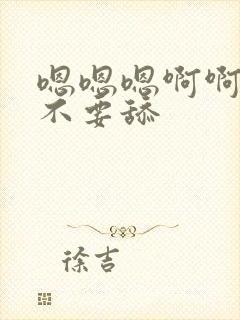 嗯嗯嗯啊啊
不要舔
徐吉